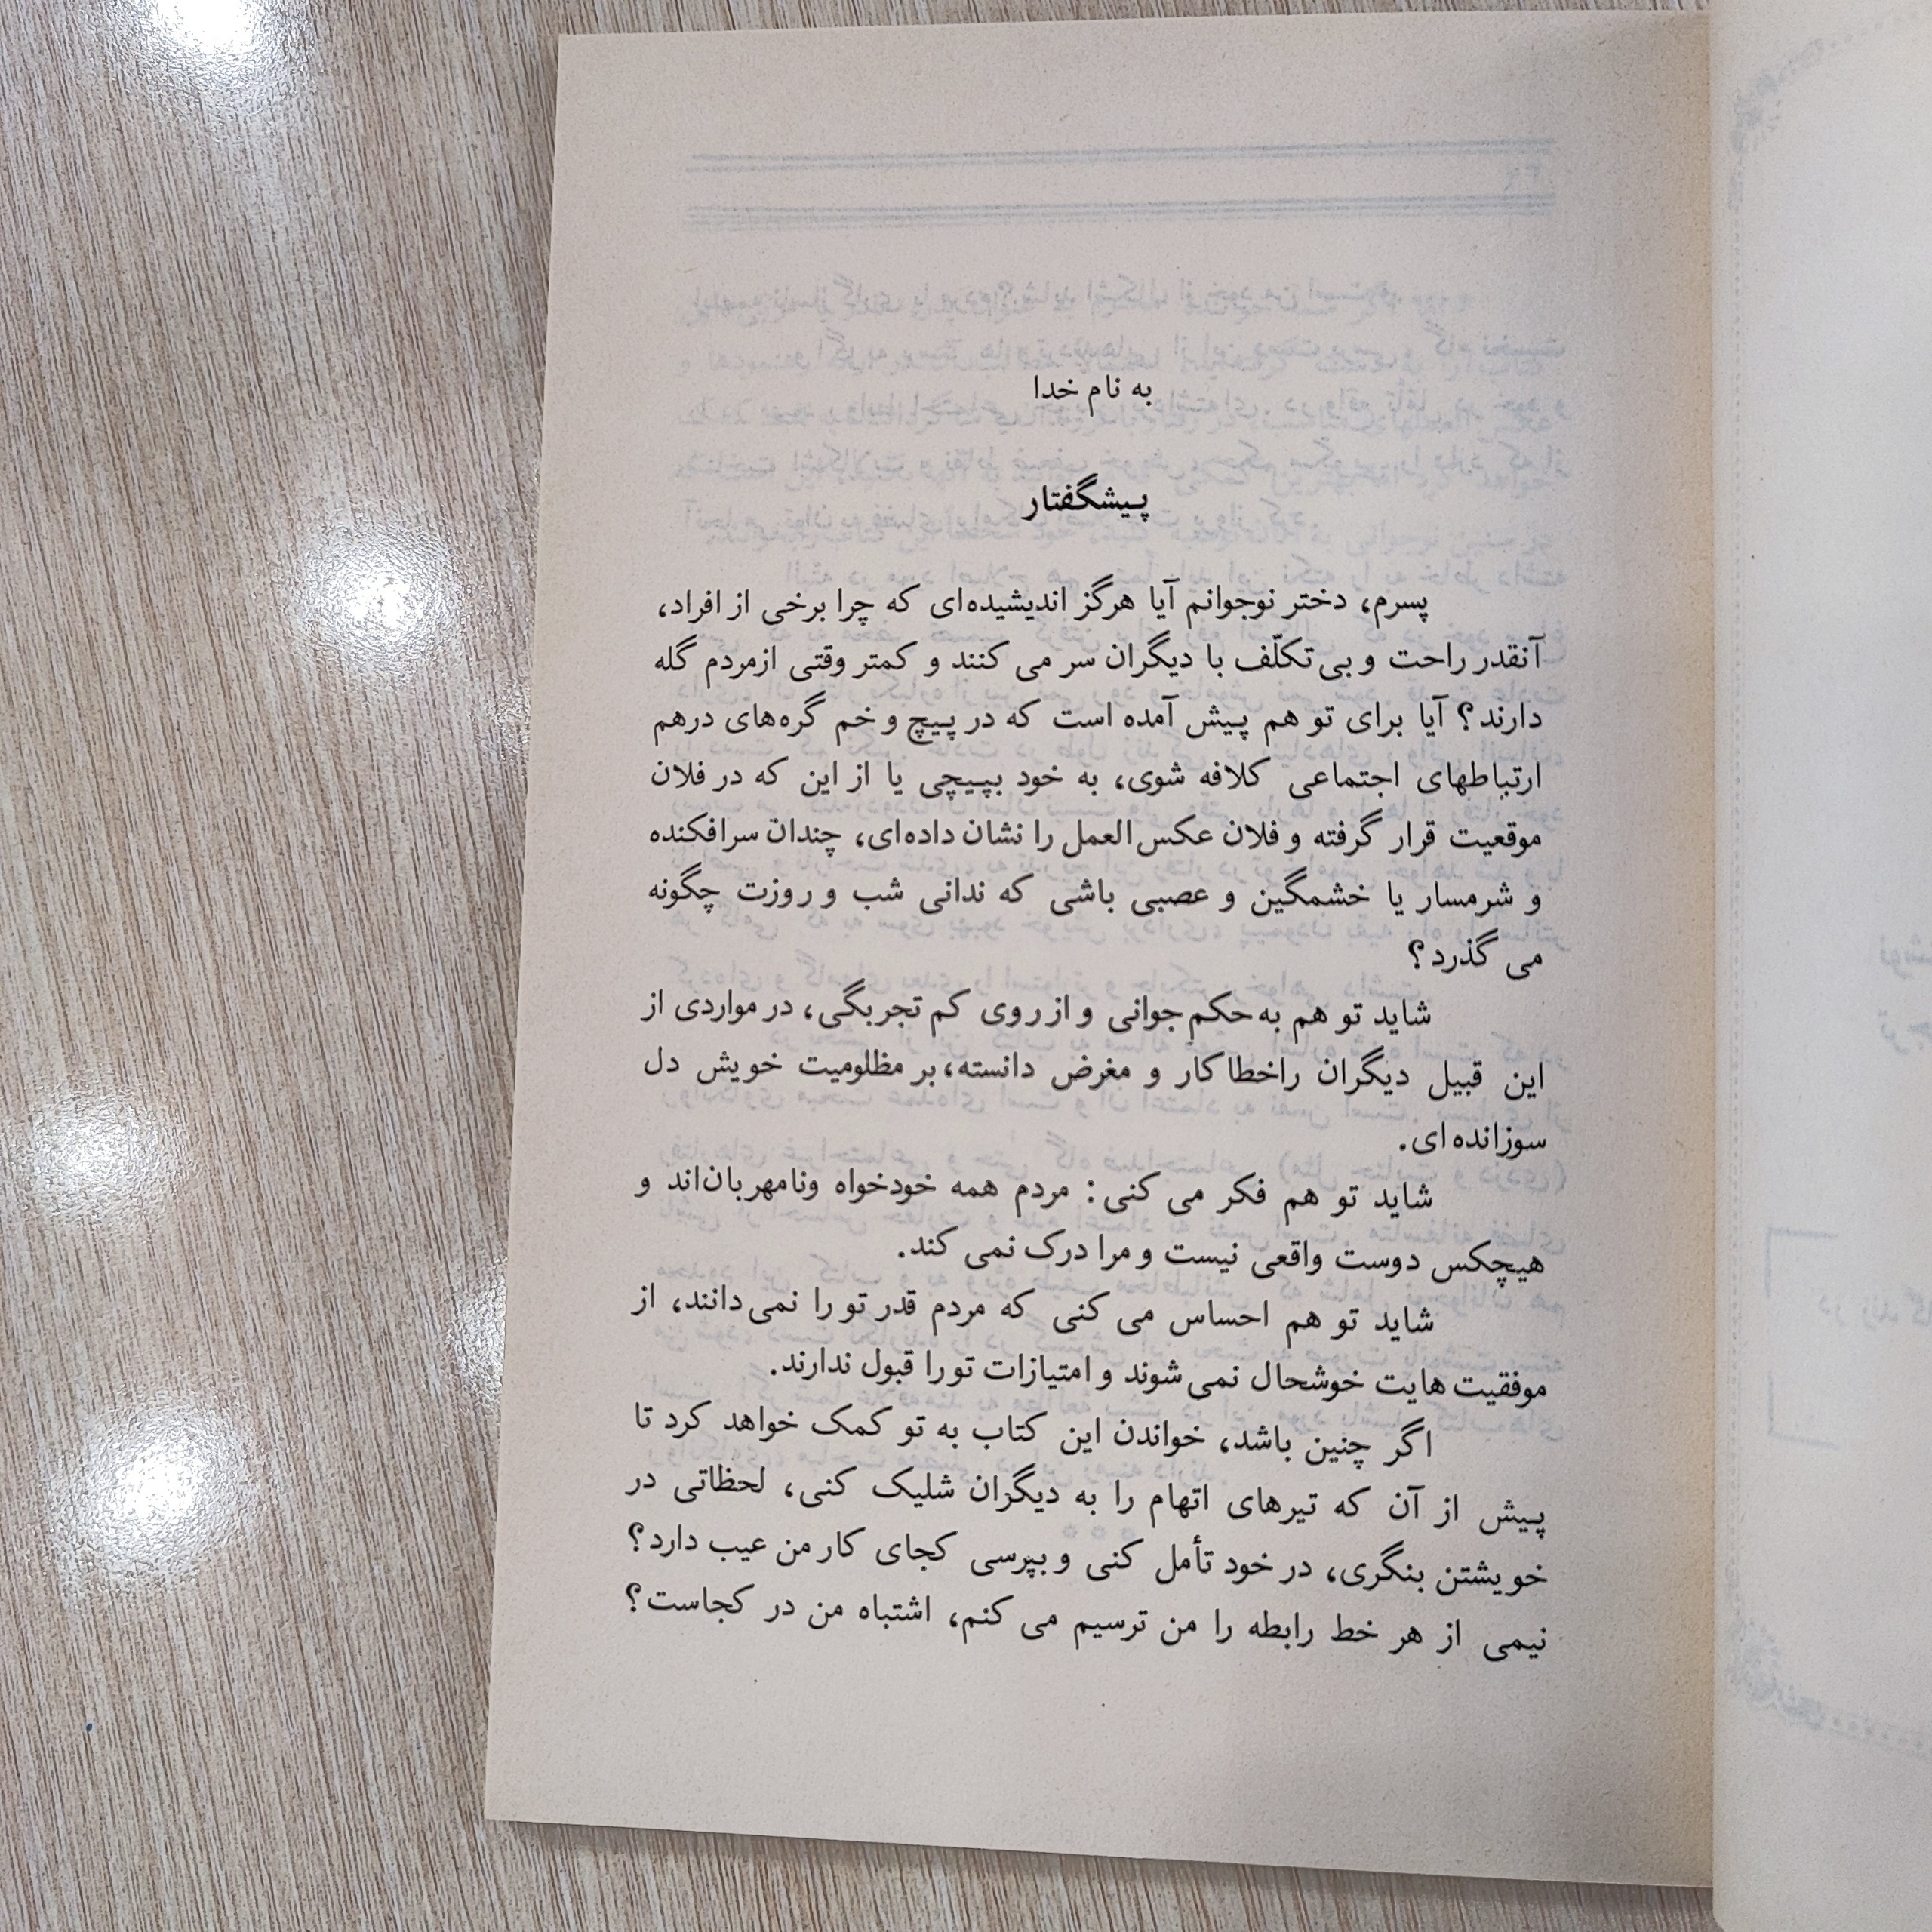 به نام خدا
پیشگفتار
پسرم، دختر نوجوانم آیا هرگز اندیشیده‌ای که چرا برخی از افراد،
آنقدر راحت و بی‌تکلّف با دیگران سر می کنند و کمتر وقتی ازمردم گله
دارند؟ آیا برای تو هم پیش آمده است که در پیچ و خم گره‌های درهم
ارتباطهای اجتماعی کلافه شوی، به خود بپیچی یا از این که در فلان
موقعیت قرار گرفته و فلان عکس‌العمل را نشان داده‌ای، چندان سرافکنده
و شرمسار یا خشمگین و عصبی باشی که ندانی شب و روزت چگونه
می گذرد؟
شاید تو هم به حکم جوانی و از روی کم تجربگی، در مواردی از
این قبیل دیگران راخطاکار و مغرض دانسته، بر مظلومیت خویش دل
سوزانده‌ای.
شاید تو هم فکر می کنی: مردم همه خودخواه ونامهربان‌اند و
هیچکس دوست واقعی نیست و مرا درک نمی کند.
شاید تو هم احساس می کنی که مردم قدر تو را نمی‌دانند، از
موفقیت هایت خوشحال نمی‌شوند و امتیازات تو را قبول ندارند.
اگر چنین باشد، خواندن این کتاب به تو کمک خواهد کرد تا
پیش از آن که تیرهای اتهام را به دیگران شلیک کنی، لحظاتی در
خویشتن بنگری، در خود تأمل کنی و بپرسی کجای کار من عیب دارد؟
نیمی از هر خط رابطه را من ترسیم می کنم، اشتباه من در کجاست؟